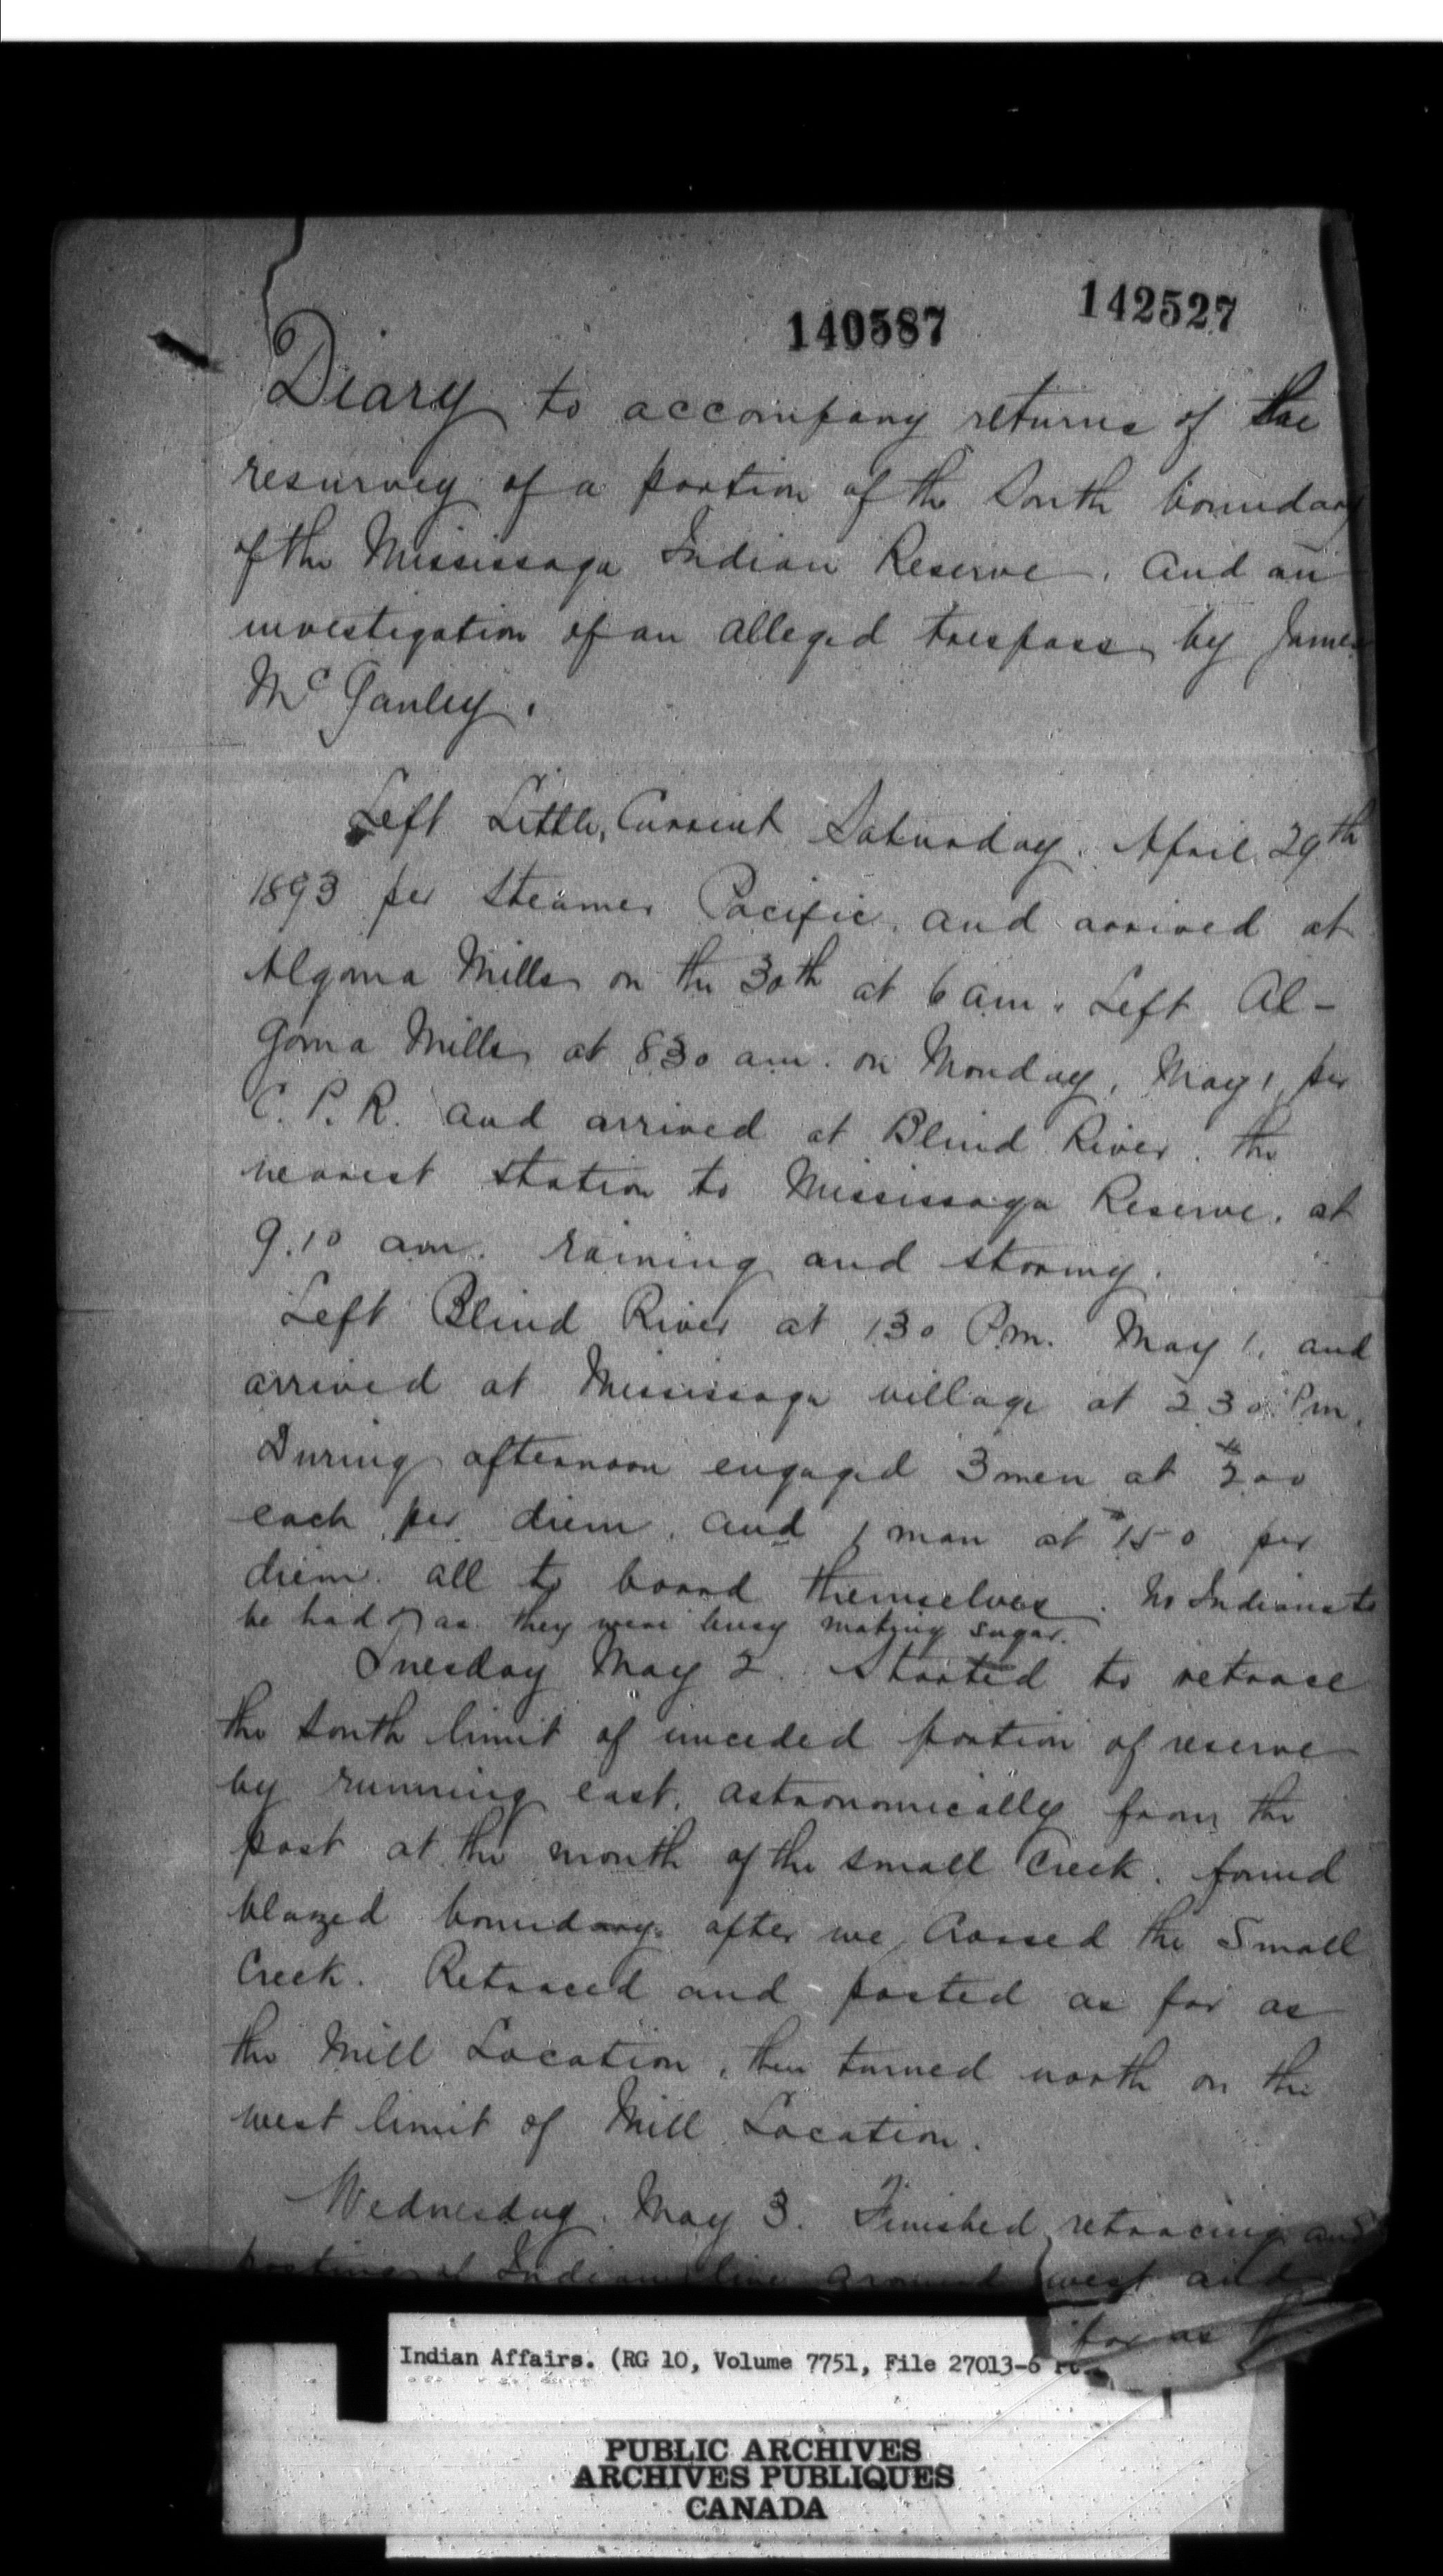 140587 142527
Diary to accompany returns of the
resurvey of a portion of the South boundary
of the Mississaga Indian Reserve. and an
investigation of an alleged trespass by James
McGanley.
Left Little Current Saturday. April 29th
1893 per Steamer Pacific, and arrived at
Algoma Mills on the 30th at 6 am. Left Al-
goma Mills at 8.30 am. on Monday, May 1, per
C. P. R. and arrived at Blind River. the
nearest station to Mississaga Reserve. at
9.10 am. raining and stormy.
Left Blind River at 1.30 P.m. May 1. and
arrived at Mississaga village at 2.30 P.m.
During afternoon engaged 3 men at $2.00
each per diem. and 1 man at $1.50 per
diem. all to board themselves. No Indians to
be had as they were busy making sugar.
Tuesday May 2. Started to retrace
the South limit of unceded portion of reserve
by running east. astronomically from the
post at the mouth of the small Creek. found
blazed boundary after we crossed the Small
Creek. Retraced and posted as far as
the Mill Location, then turned north on the
west limit of Mill Location.
Wednesday. May 3. Finished retracing and
posting of Indian line around west and
far as
Indian Affairs. (RG 10, Volume 7751, File 27013-6
PUBLIC ARCHIVES
ARCHIVES PUBLIQUES
CANADA